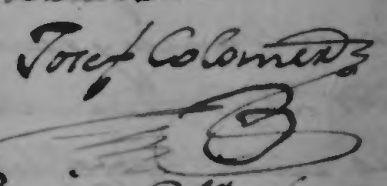 Josef Colomer